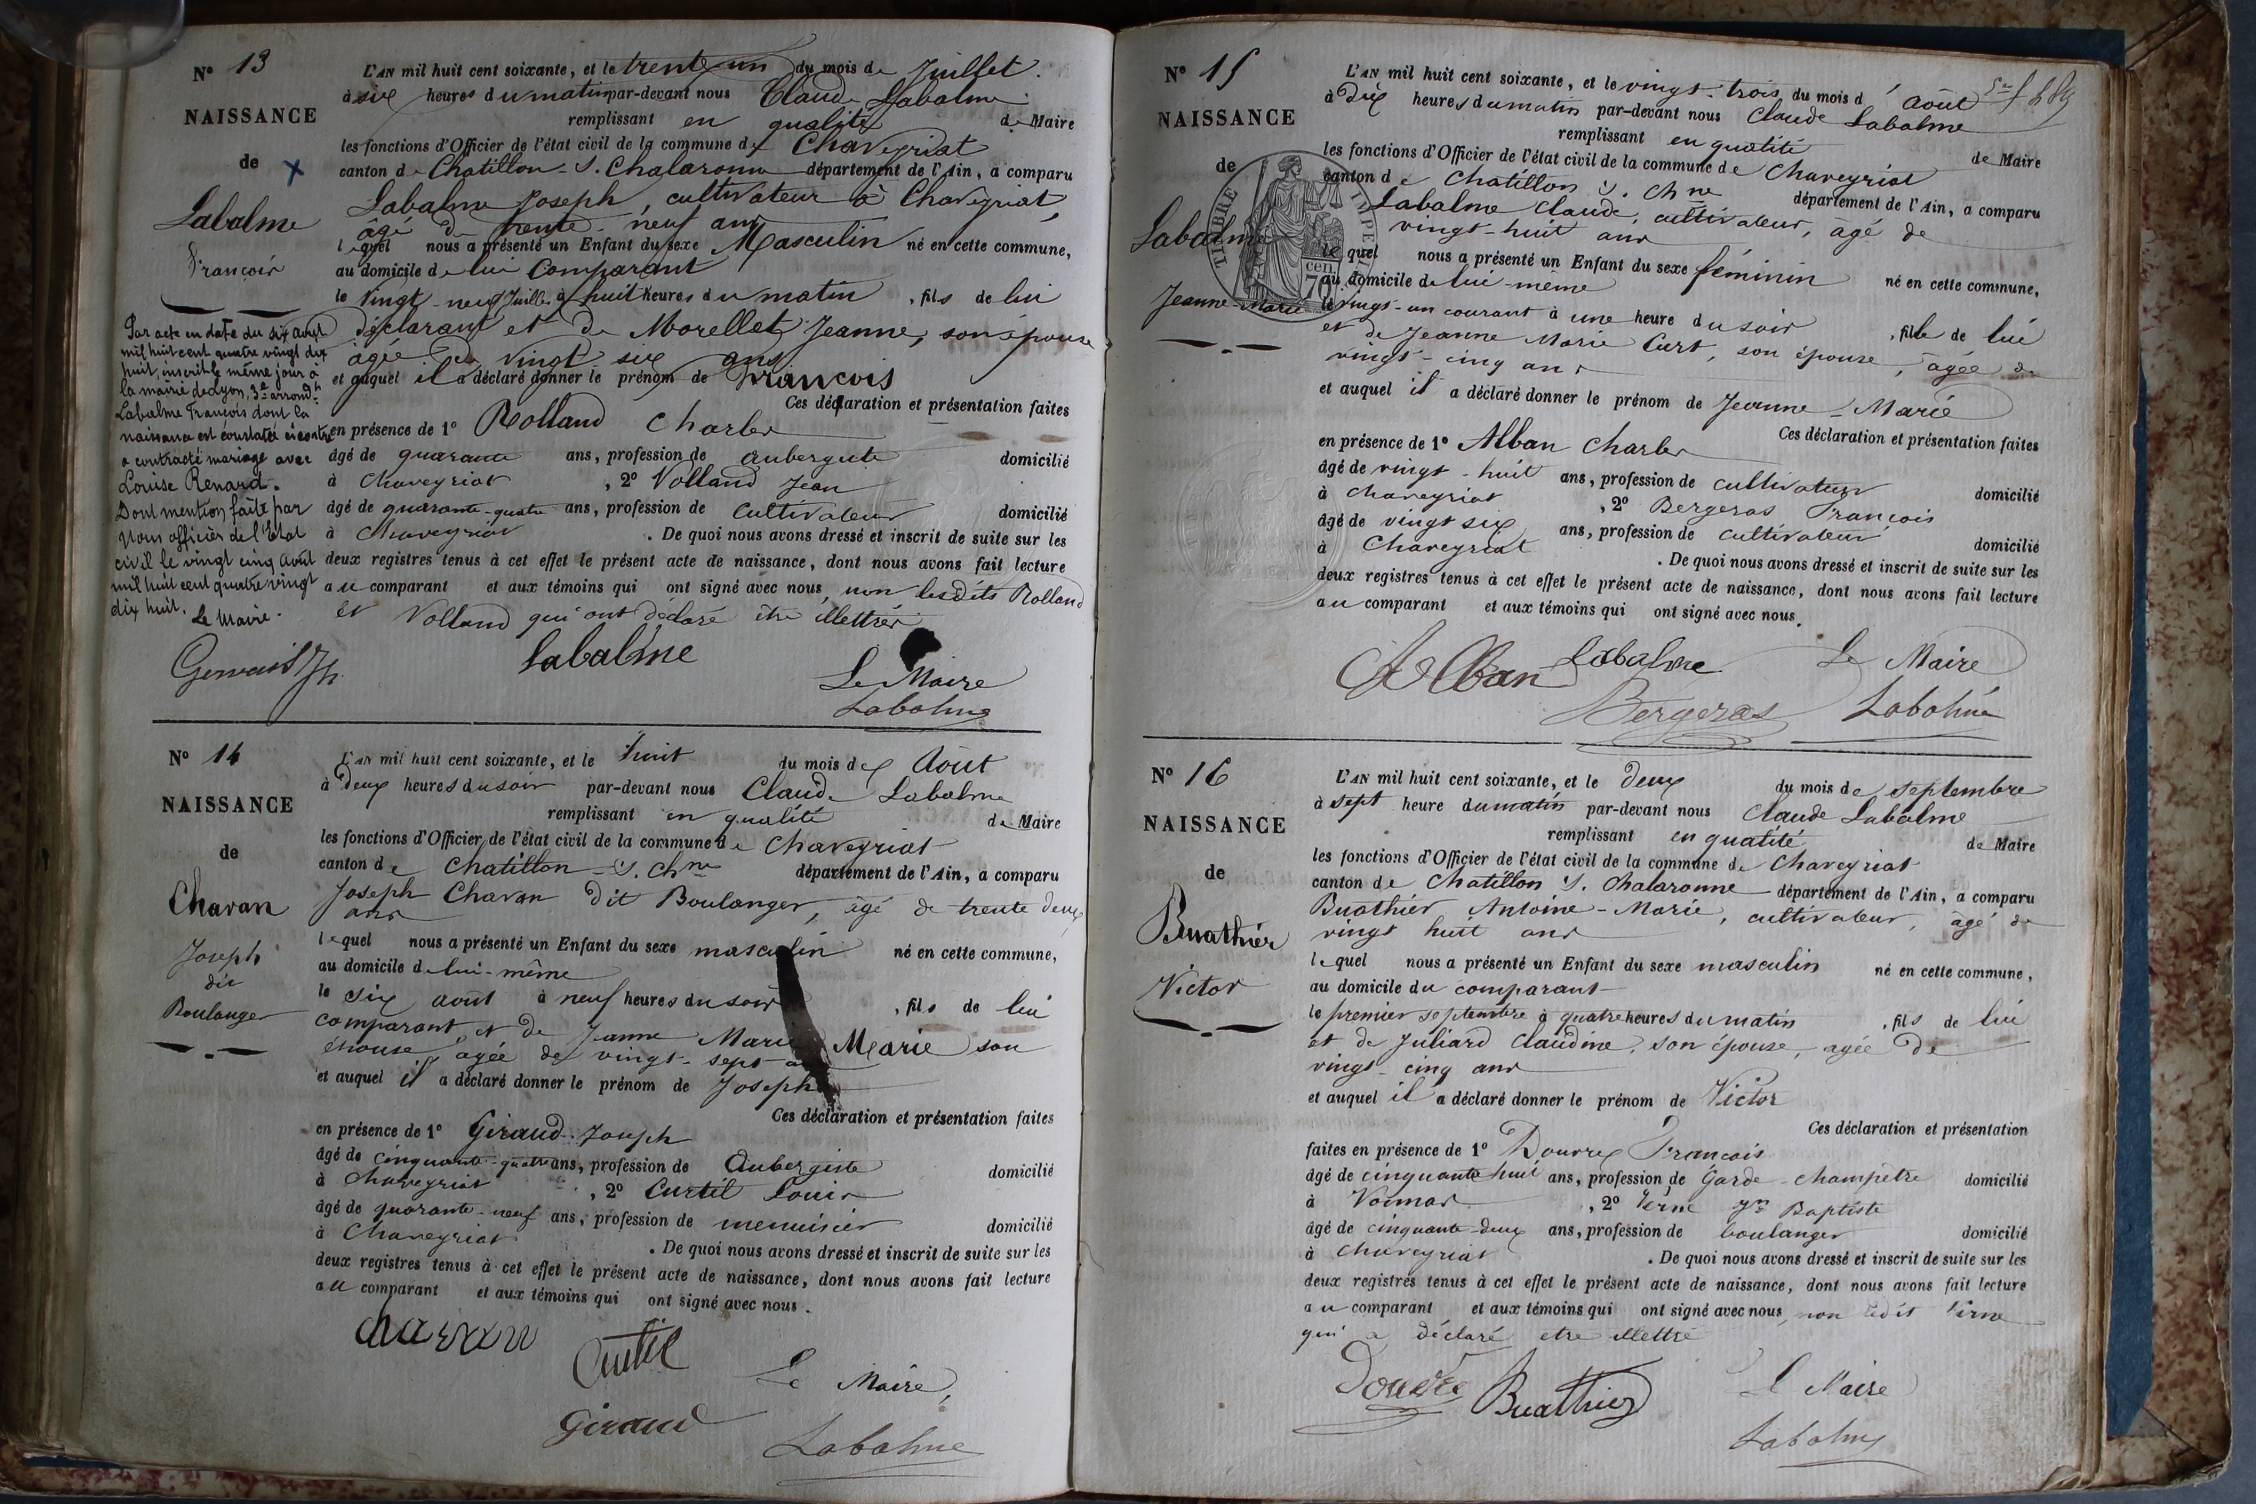 Nº 13
NAISSANCE
de
Labalme
François
L'AN mil huit cent soixante, et le trente-un du mois de Juillet.
à six heures du matin par-devant nous Claude Labalme
remplissant en qualité de Maire
les fonctions d'Officier de l'état civil de la commune de Chaveyriat
canton de Chatillon-s. Chalaronne département de l'Ain, a comparu
Labalme Joseph, cultivateur à Chaveyriat,
âgé de trente-neuf ans
lequel nous a présenté un Enfant du sexe Masculin né en cette commune,
au domicile de lui Comparant
le vingt-neuf Juillet à huit heures du matin, fils de lui
déclarant et de Morellet Jeanne, son épouse
âgée de vingt-six ans
et auquel il a déclaré donner le prénom de François
Ces déclaration et présentation faites
en présence de 1º Rolland Charles
âgé de quarante ans, profession de aubergiste domicilié
à Chaveyriat, 2º Volland Jean
âgé de quarante-quatre ans, profession de cultivateur domicilié
à Chaveyriat. De quoi nous avons dressé et inscrit de suite sur les
deux registres tenus à cet effet le présent acte de naissance, dont nous avons fait lecture
au comparant et aux témoins qui ont signé avec nous, non lesdits Rolland
et Volland qui ont déclaré être illettrés
labalme
Le Maire
Labalme
Par acte en date du six Août
mil huit cent quatre vingt dix
huit, inscrit le même jour à
la mairie de Lyon, 3e arrondt
Labalme François dont la
naissance est constatée ci contre
a contracté mariage avec
Louise Renard.
Dont mention faite par
Nous officier de l'Etat
civil le vingt cinq Août
mil huit cent quatre vingt
dix huit.
Le Maire.
Gervais Jh
Nº 14
NAISSANCE
de
Chavan
Joseph
dit
Boulanger
L'AN mil huit cent soixante, et le huit du mois de Août
à deux heures du soir par-devant nous Claude Labalme
remplissant en qualité de Maire
les fonctions d'Officier de l'état civil de la commune de Chaveyriat
canton de Chatillon-s. Chne département de l'Ain, a comparu
Joseph Chavan dit Boulanger, âgé de trente deux
ans
lequel nous a présenté un Enfant du sexe masculin né en cette commune,
au domicile de lui-même
le six août à neuf heures du soir, fils de lui
comparant et de Jeanne Marie Marie son
épouse âgée de vingt-sept
et auquel il a déclaré donner le prénom de Joseph
Ces déclaration et présentation faites
en présence de 1º Giraud Joseph
âgé de cinquante-quatre ans, profession de Aubergiste domicilié
à Chaveyriat, 2º Curtil Louis
âgé de quarante-neuf ans, profession de menuisier domicilié
à Chaveyriat. De quoi nous avons dressé et inscrit de suite sur les
deux registres tenus à cet effet le présent acte de naissance, dont nous avons fait lecture
au comparant et aux témoins qui ont signé avec nous.
chavan
Curtil
Le Maire,
Giraud
Labalme
Nº 15
NAISSANCE
de
Labalme
Jeanne-Marie
TIMBRE IMPERIAL
70 cen.
L'AN mil huit cent soixante, et le vingt-trois du mois d'août
à dix heures du matin par-devant nous Claude Labalme
remplissant en qualité de Maire
les fonctions d'Officier de l'état civil de la commune de Chaveyriat
canton de Chatillon s. Chne département de l'Ain, a comparu
Labalme Claude, cultivateur, âgé de
vingt-huit ans
lequel nous a présenté un Enfant du sexe féminin né en cette commune,
au domicile de lui-même
le vingt-un courant à une heure du soir, fille de lui
et de Jeanne Marie Curt, son épouse, âgée de
vingt-cinq ans
et auquel il a déclaré donner le prénom de Jeanne-Marie
Ces déclaration et présentation faites
en présence de 1º Alban Charles
âgé de vingt-huit ans, profession de cultivateur domicilié
à Chaveyriat, 2º Bergeras François
âgé de vingt six ans, profession de cultivateur domicilié
à Chaveyriat. De quoi nous avons dressé et inscrit de suite sur les
deux registres tenus à cet effet le présent acte de naissance, dont nous avons fait lecture
au comparant et aux témoins qui ont signé avec nous.
Alban Labalme Le Maire
Bergeras Labalme
Nº 16
NAISSANCE
de
Buathier
Victor
L'AN mil huit cent soixante, et le deux du mois de septembre
à sept heure du matin par-devant nous Claude Labalme
remplissant en qualité de Maire
les fonctions d'Officier de l'état civil de la commune de Chaveyriat
canton de Chatillon s. Chalaronne département de l'Ain, a comparu
Buathier Antoine-Marie, cultivateur, âgé de
vingt huit ans
lequel nous a présenté un Enfant du sexe masculin né en cette commune,
au domicile du comparant
le premier septembre à quatre heures du matin, fils de lui
et de Juliard Claudine, son épouse, agée de
vingt-cinq ans
et auquel il a déclaré donner le prénom de Victor
Ces déclaration et présentation
faites en présence de 1º Douvre François
âgé de cinquante huit ans, profession de Garde-champêtre domicilié
à, 2º Verne Jn Baptiste
âgé de cinquante-deux ans, profession de boulanger domicilié
à Chaveyriat. De quoi nous avons dressé et inscrit de suite sur les
deux registres tenus à cet effet le présent acte de naissance, dont nous avons fait lecture
au comparant et aux témoins qui ont signé avec nous, non ledit Verne
qui a déclaré etre illettré
Douvre Buathier Le Maire
Labalme